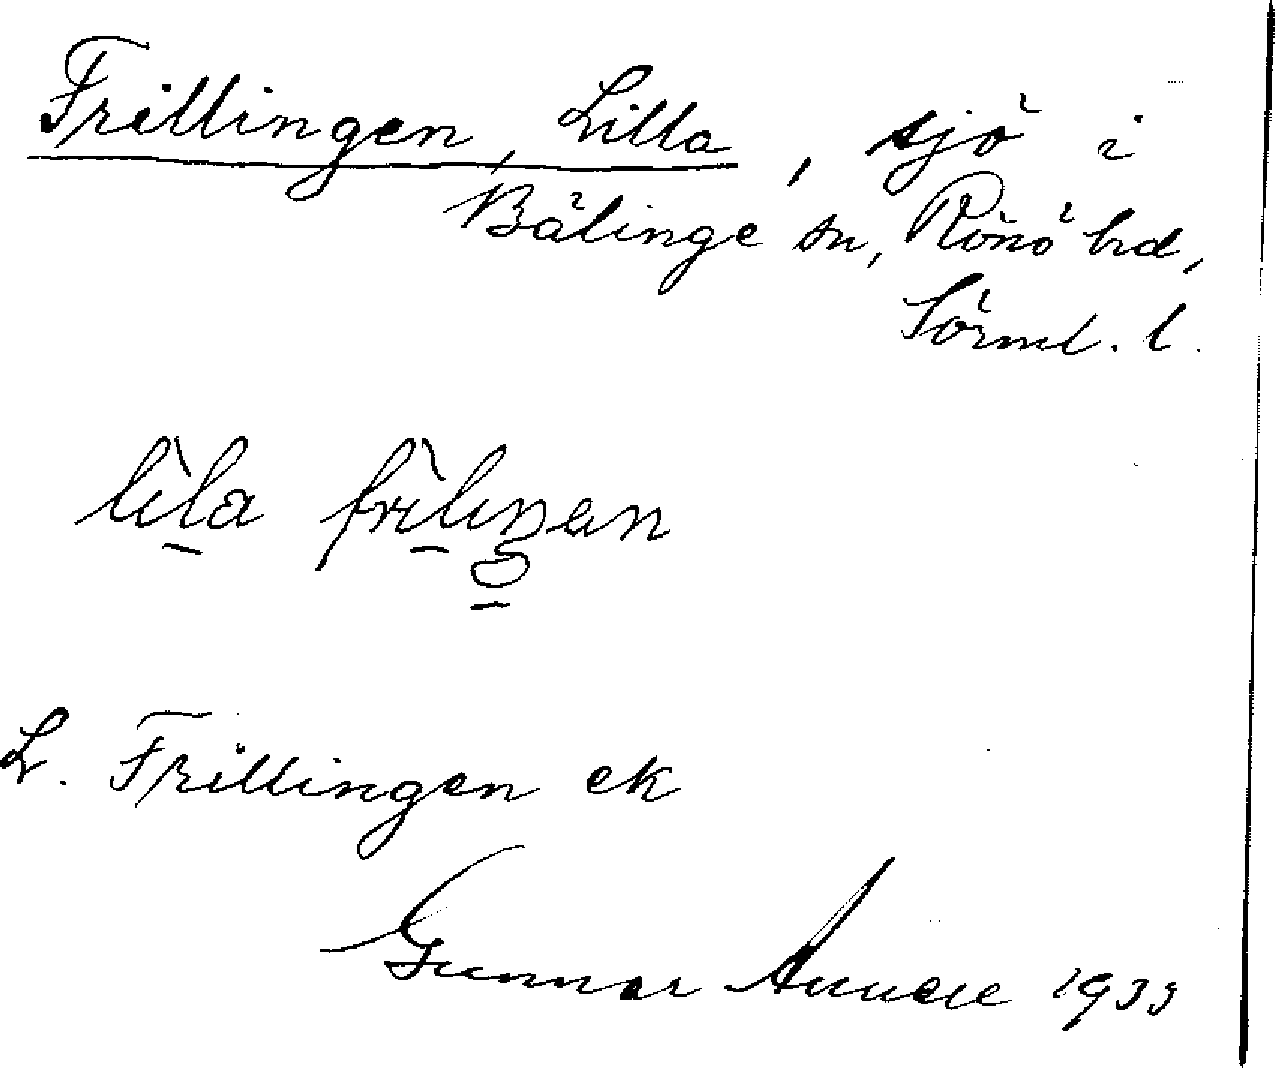 Frillingen, Lilla, sjö i
Bälinge sn, Rönö hd,
Sörml. l.
lìla frìliŋən
L. Frillingen ek
Gunnar 1933